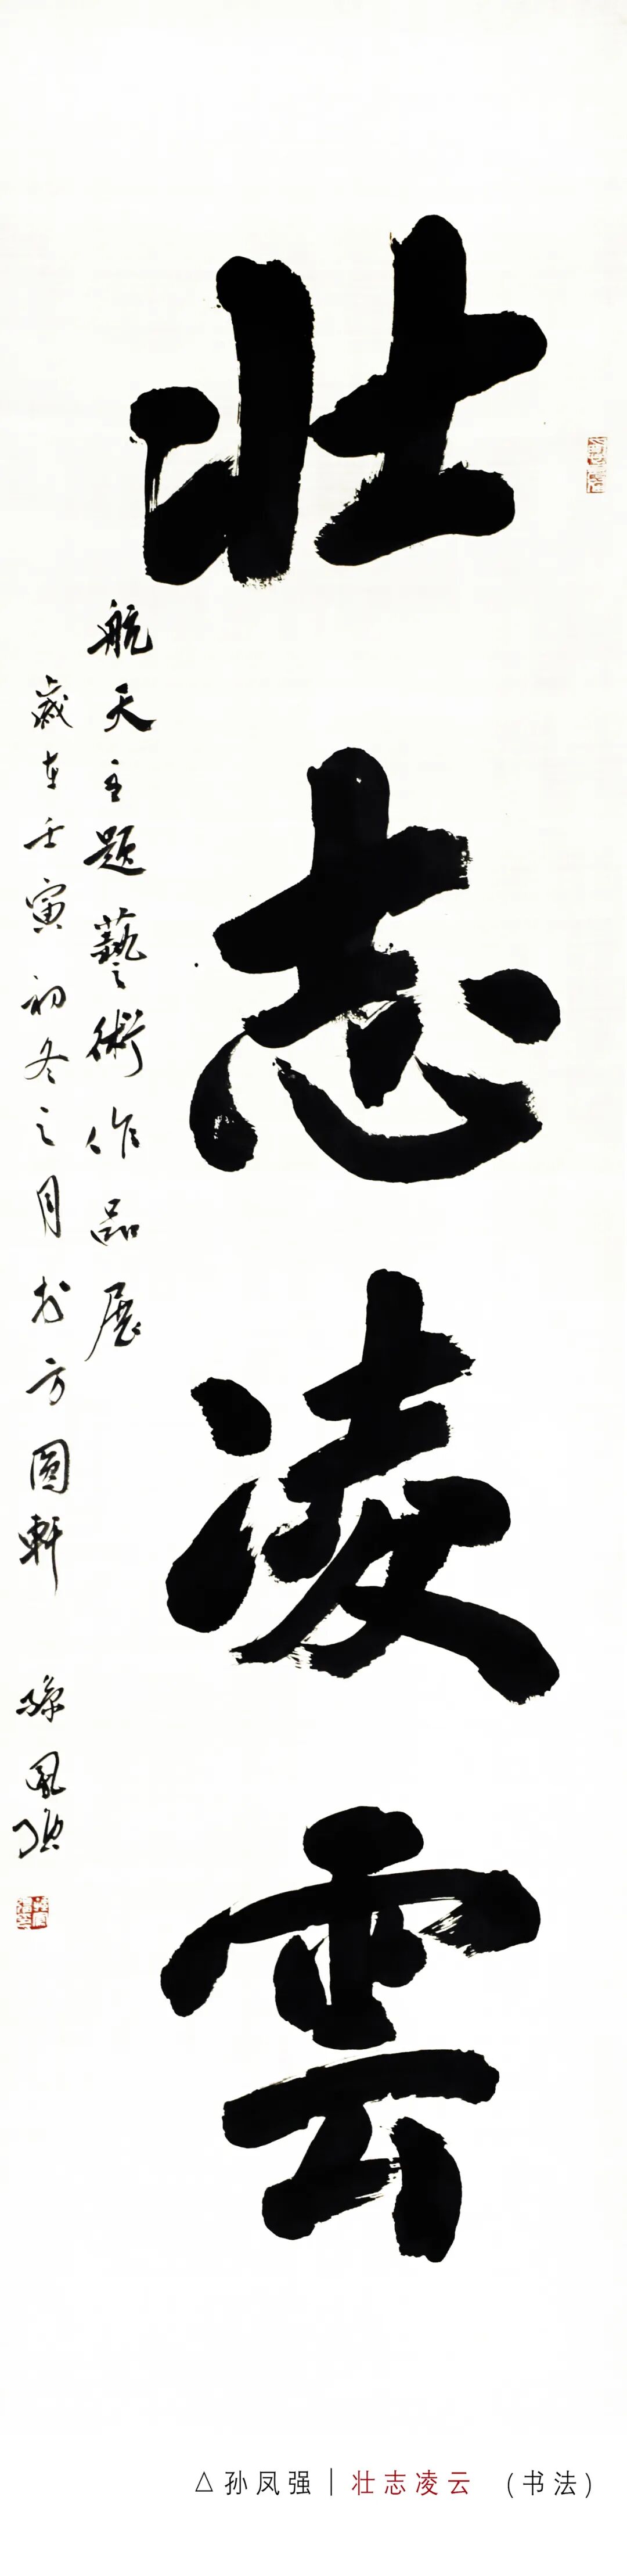 壯志凌雲
航天主题藝術作品展
歲在壬寅初冬之月於方圓軒 孫鳳强
△孙凤强｜壮志凌云（书法）